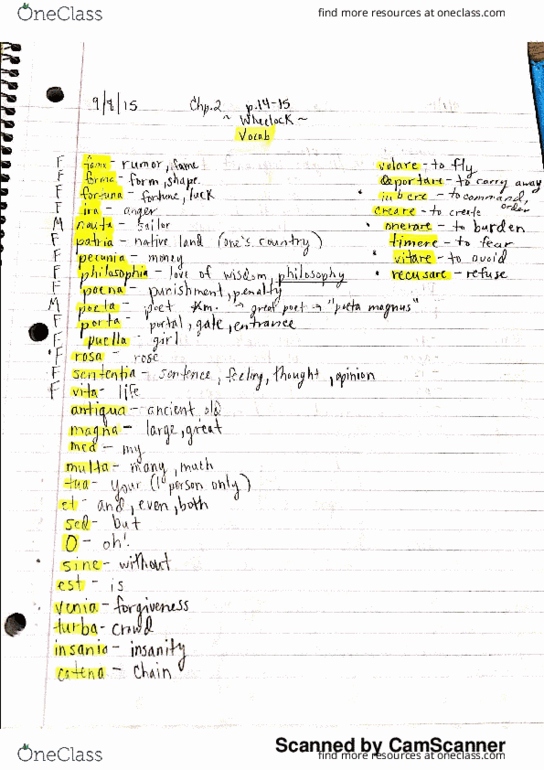 OneClass
find more resources at oneclass.com
9/8/15 Chp.2 p.14-15
~ Wheelock ~
Vocab
F fama - rumor, fame
F forma - form, shape.
F fortuna - fortune, luck
F ira - anger
M nauta - sailor
F patria - native land (one's country)
F pecunia - money
F philosophia - love of wisdom, philosophy
F poena - punishment, penalty
M poeta - poet *m. ~ great poet → "poeta magnus"
F porta - portal, gate, entrance
F puella - girl
F rosa - rose
F sententia - sentence, feeling, thought, opinion
F vita - life
antiqua - ancient old
magna - large, great
mea - my
multa - many, much
tua - your (1 person only)
et - and, even, both
sed - but
O - oh!
sine - without
est - is
venia - forgiveness
turba - crowd
insania - insanity
catena - chain
volare - to fly
deportare - to carry away
iubere - to command, order
creare - to create
onerare - to burden
timere - to fear
vitare - to avoid
recusare - refuse
Scanned by CamScanner
OneClass
find more resources at oneclass.com